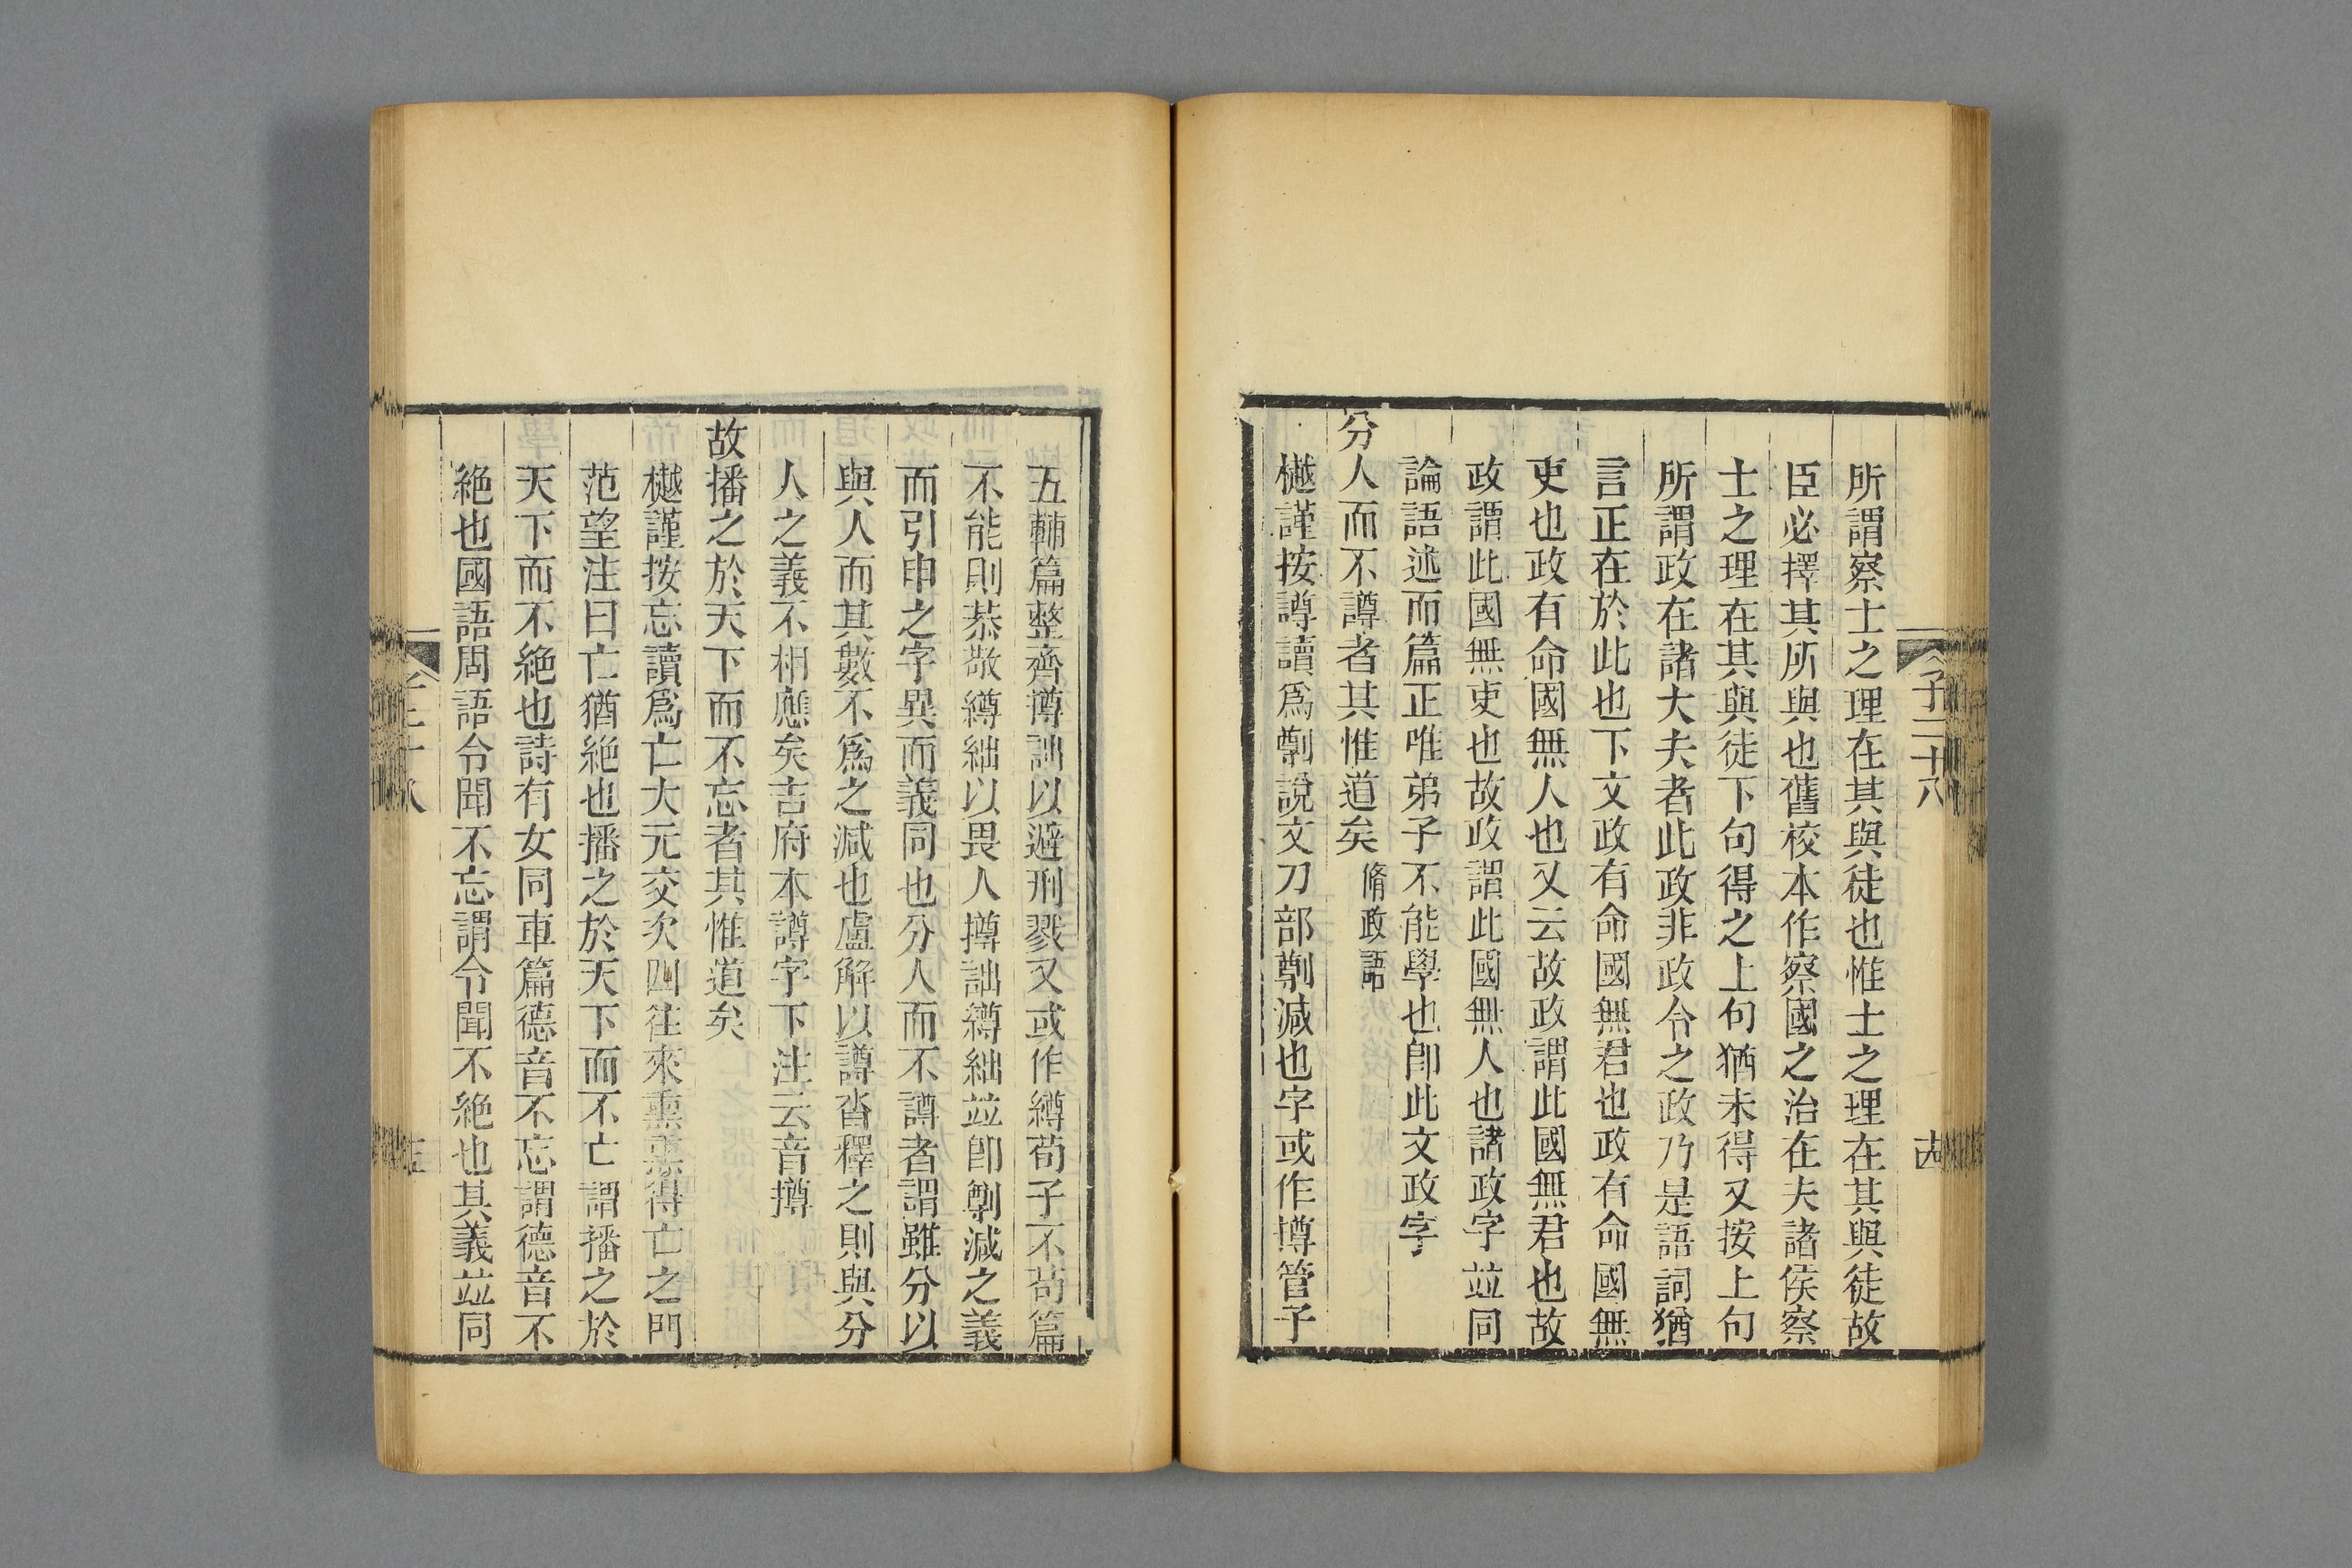 子二十八
十四
所謂察士之理在其與徒也惟士之理在其與徒故
臣必擇其所與也舊校本作察國之治在夫諸侯察
士之理在其與徒下句得之上句猶未得又按上句
所謂政在諸大夫者此政非政令之政乃是語詞猶
言正在於此也下文政有命國無君也政有命國無
吏也政有命國無人也又云故政謂此國無君也故
政謂此國無吏也故政謂此國無人也諸政字並同
論語述而篇正唯弟子不能學也卽此文政字
分人而不譐者其惟道矣脩政語
樾謹按譐讀爲劕說文刀部劕減也字或作撙管子
五輔篇整齊撙詘以避刑戮又或作繜荀子不苟篇
不能則恭敬繜絀以畏人撙詘繜絀並卽劕減之義
而引申之字異而義同也分人而不譐者謂雖分以
與人而其數不爲之減也盧解以譐沓釋之則與分
人之義不相應矣吉府本譐字下注云音撙
故播之於天下而不忘者其惟道矣
樾謹按忘讀爲亡大元交次四往來熏熏得亡之門
范望注曰亡猶絶也播之於天下而不亡謂播之於
天下而不絶也詩有女同車篇德音不忘謂德音不
絶也國語周語令聞不忘謂令聞不絶也其義並同